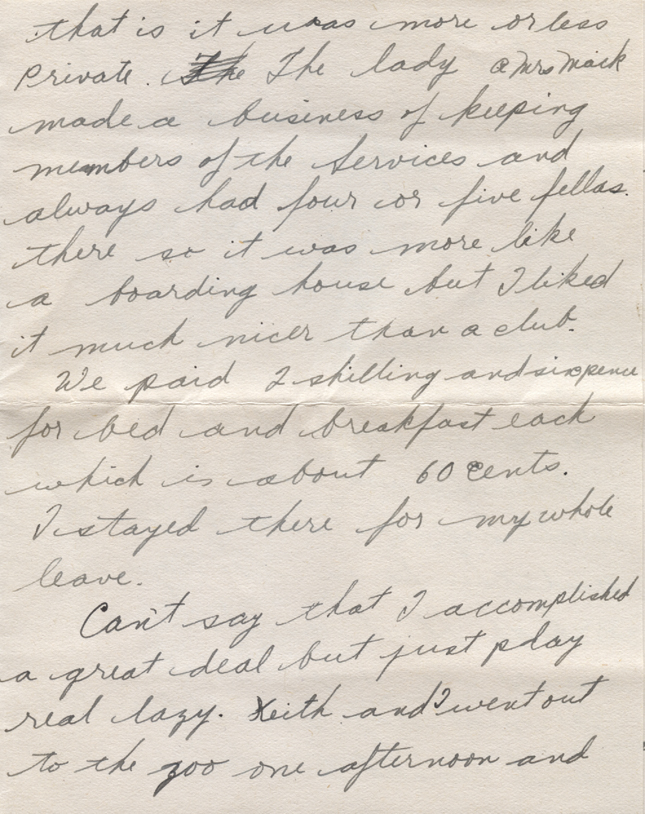 that is it was more or less
Private. The The lady a Mrs Mack
made a business of keeping
members of the Services and
always had four or five fellas.
there so it was more like
a boarding house but I liked
it much nicer than a club.
We paid 2 shilling and sixpence
for bed and breakfast each
which is about 60 cents.
I stayed there for my whole
leave.
Can't say that I accomplished
a great deal but just play
real lazy. Keith and I went out
to the zoo one afternoon and